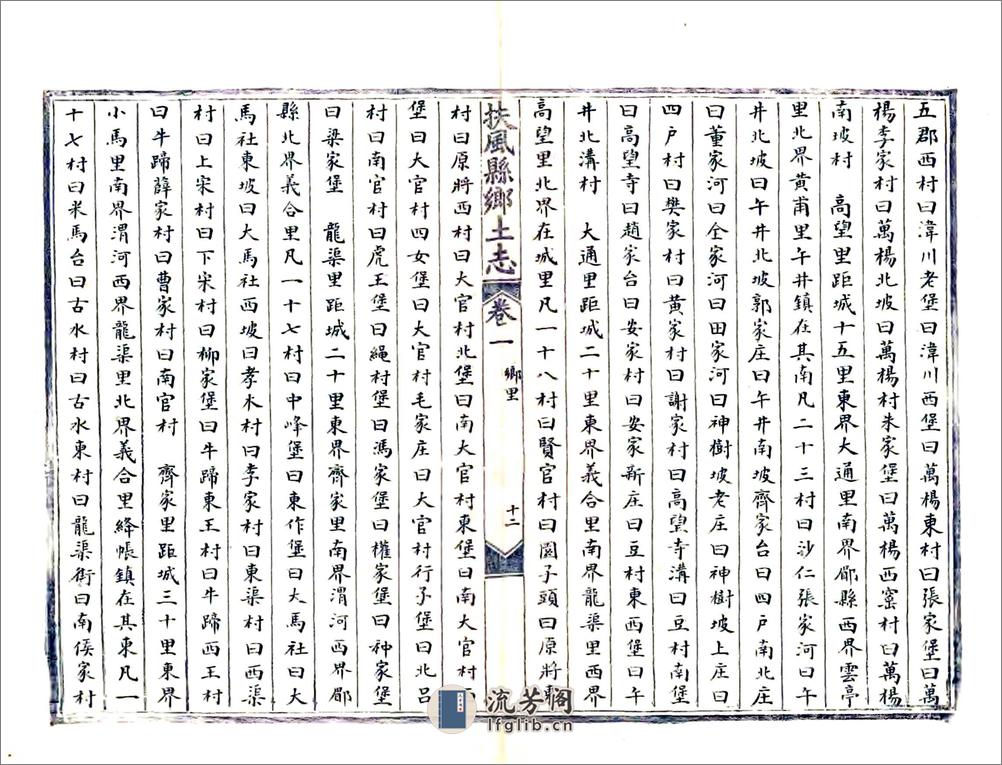 五郡西村曰湋川老堡曰湋川西堡曰萬楊東村曰張家堡曰萬
楊李家村曰萬楊北坡曰萬楊村朱家堡曰萬楊西窰村曰萬楊
南坡村　高望里距城十五里東界大通里南界郿縣西界雲亭
里北界黄甫里午井鎮在其南凡二十三村曰沙仁張家河曰午
井北坡曰午井北坡郭家庄曰午井南坡齊家台曰四户南北庄
曰董家河曰全家河曰田家河曰神樹坡老庄曰神樹坡上庄曰
四户村曰樊家村曰黄家村曰謝家村曰高望寺溝曰豆村南堡
曰高望寺曰趙家台曰安家村曰安家新庄曰豆村東西堡曰午
井北溝村　大通里距城二十里東界義合里南界龍渠里西界
高望里北界在城里凡一十八村曰賢官村曰園子頭曰原將
扶風縣鄉土志
卷一
鄉里
十二
村曰原將西村曰大官村北堡曰南大官村東堡曰南大官村
堡曰大官村四女堡曰大官村毛家庄曰大官村行子堡曰北吕
村曰南官村曰虎王堡曰繩村堡曰馮家堡曰權家堡曰种家堡
曰梁家堡　龍渠里距城二十里東界齊家里南界渭河西界郿
縣北界義合里凡一十七村曰中峰堡曰東作堡曰大馬社曰大
馬社東坡曰大馬社西坡曰孝水村曰李家村曰東渠村曰西渠
村曰上宋村曰下宋村曰柳家堡曰牛蹄東王村曰牛蹄西王村
曰牛蹄薛家村曰曹家村曰南官村　齊家里距城三十里東界
小馬里南界渭河西界龍渠里北界義合里絳帳鎮在其東凡一
十七村曰米馬台曰古水村曰古水東村曰龍渠街曰南侯家村
流芳閣
lfglib.cn